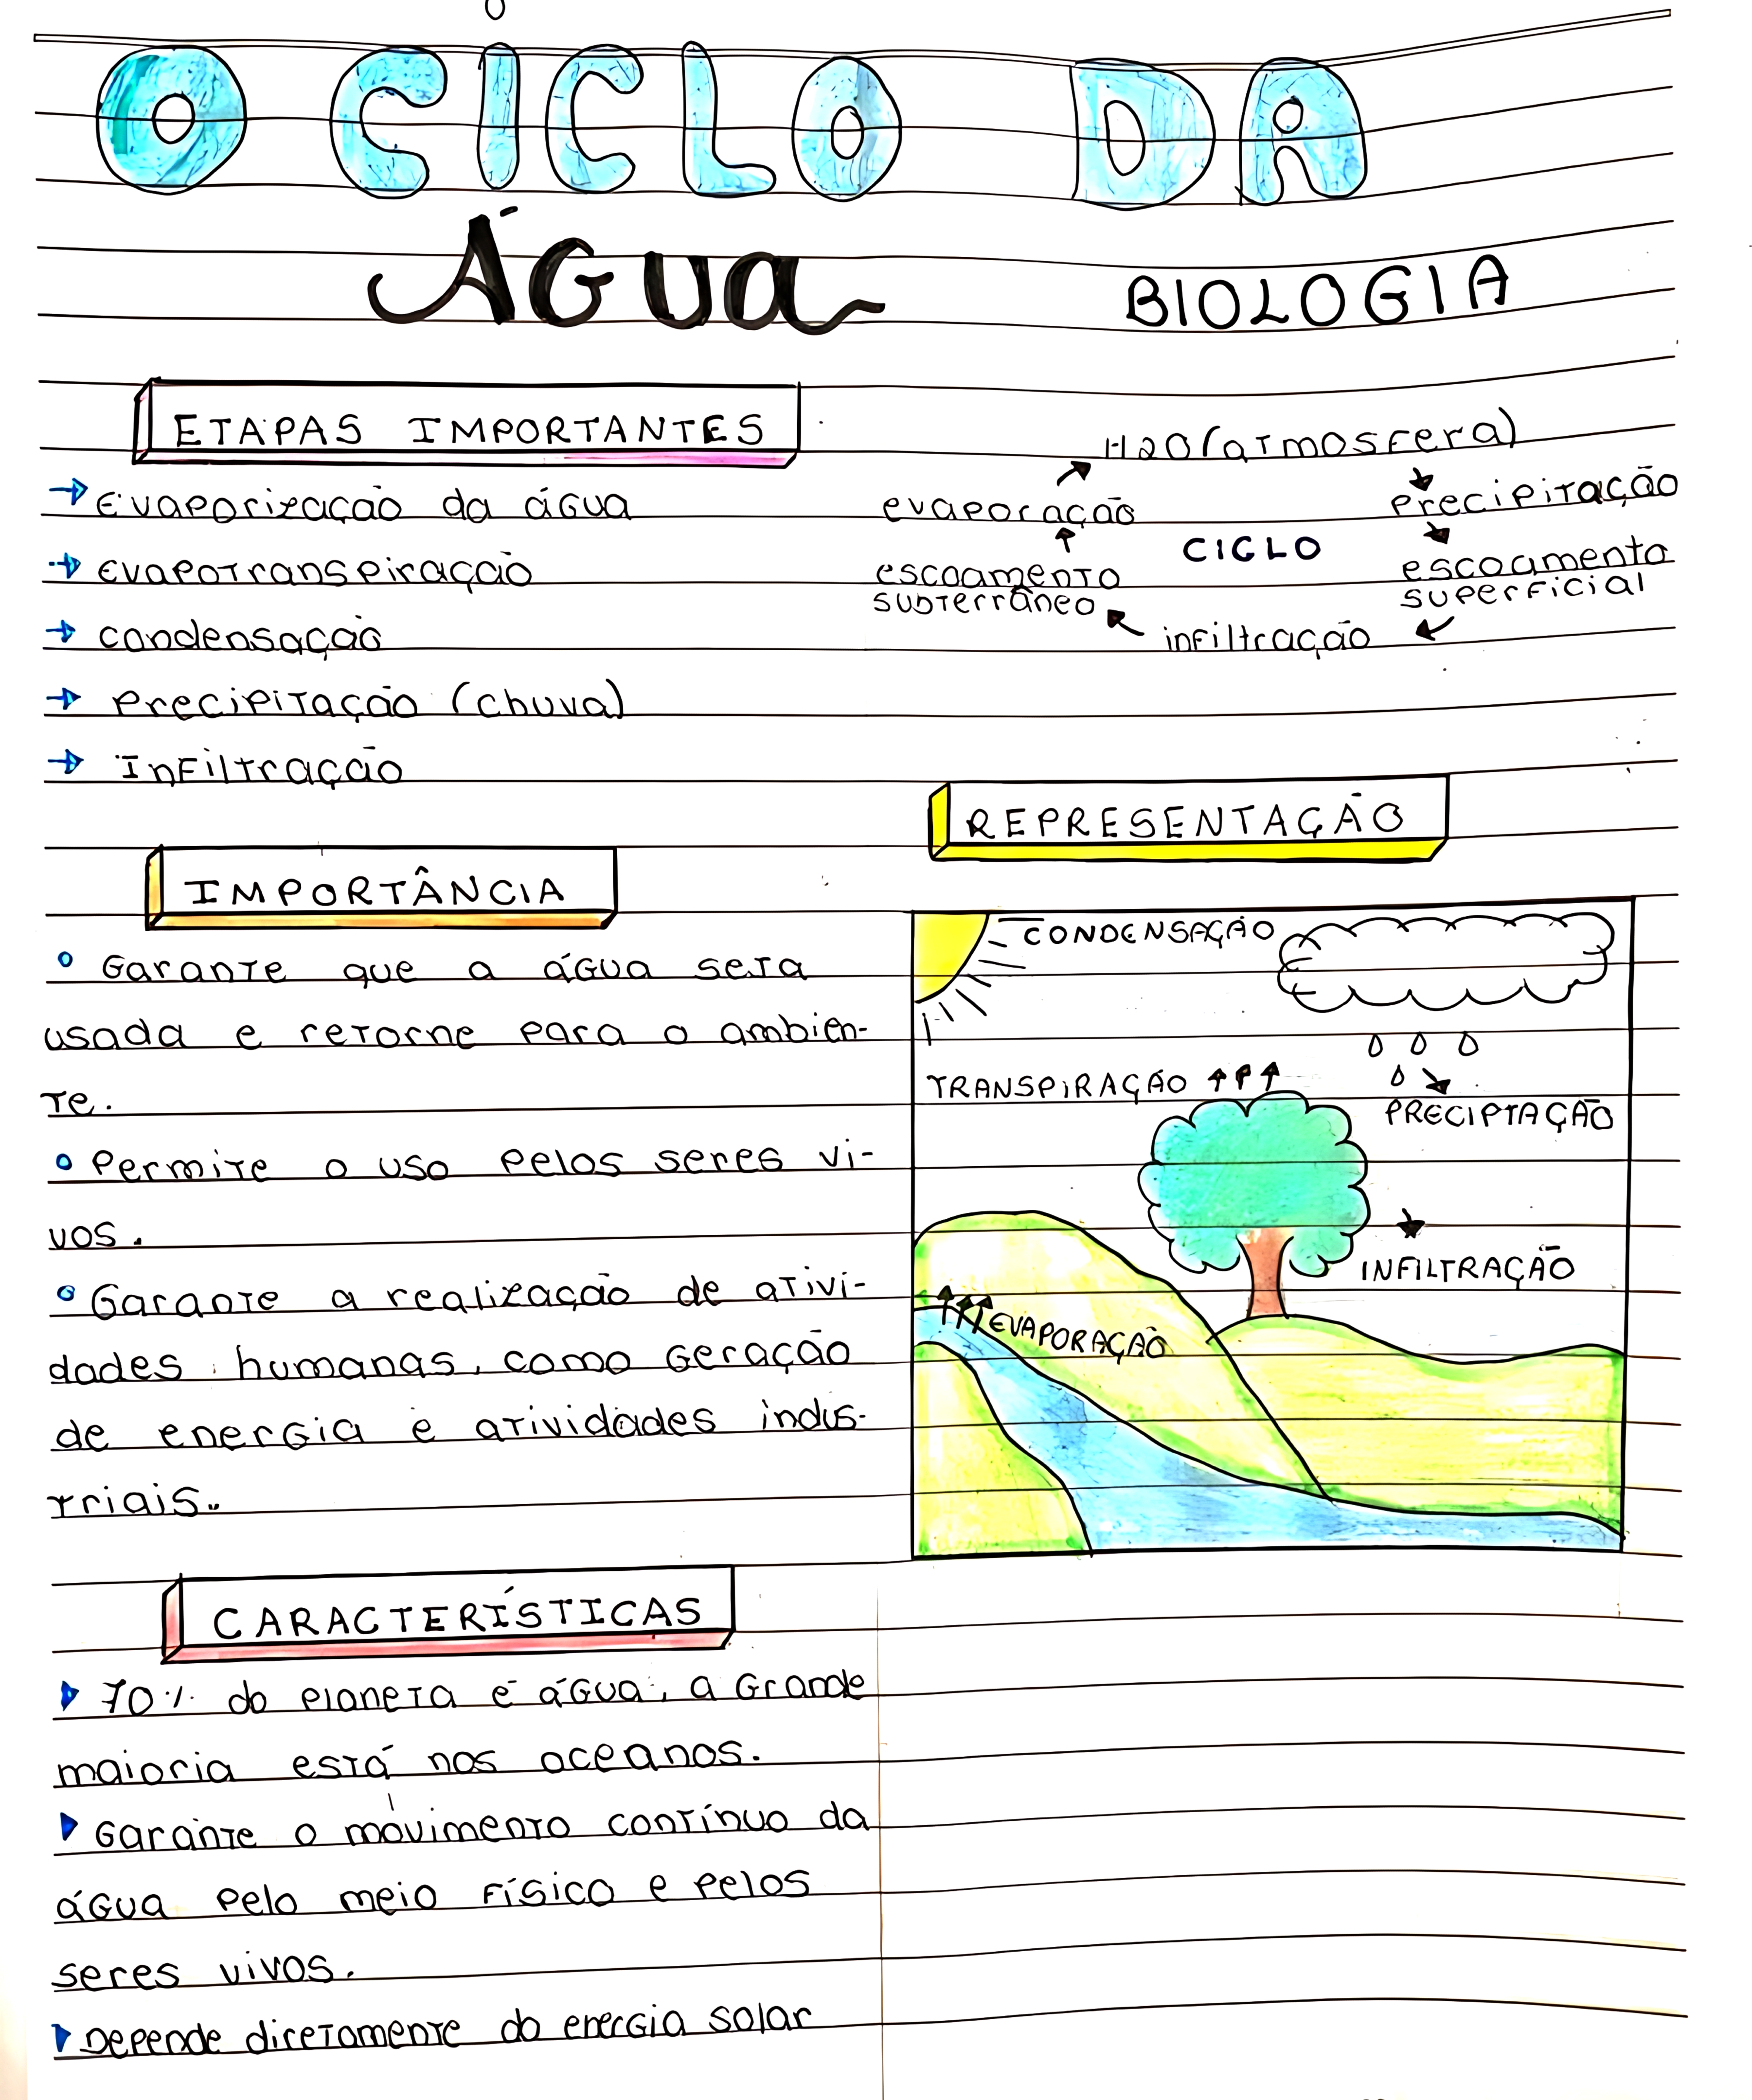 O CICLO DA
ÁGUA
BIOLOGIA
ETAPAS IMPORTANTES
Evaporização da água
evapotranspiração
condensação
Precipitação (chuva)
Infiltração
H2O(atmosfera)
precipitação
escoamento
superficial
infiltração
escoamento
subterrâneo
evaporação
CICLO
IMPORTÂNCIA
Garante que a água seja
usada e retorne para o ambien-
te.
Permite o uso pelos seres vi-
vos.
Garante a realização de ativi-
dades humanas, como geração
de energia e atividades indus-
triais.
REPRESENTAÇÃO
CONDENSAÇÃO
TRANSPIRAÇÃO
PRECIPTAÇÃO
INFILTRAÇÃO
EVAPORAÇÃO
CARACTERÍSTICAS
70% do planeta é água, a grande
maioria está nos oceanos.
Garante o movimento contínuo da
água pelo meio físico e pelos
seres vivos.
Depende diretamente da energia solar